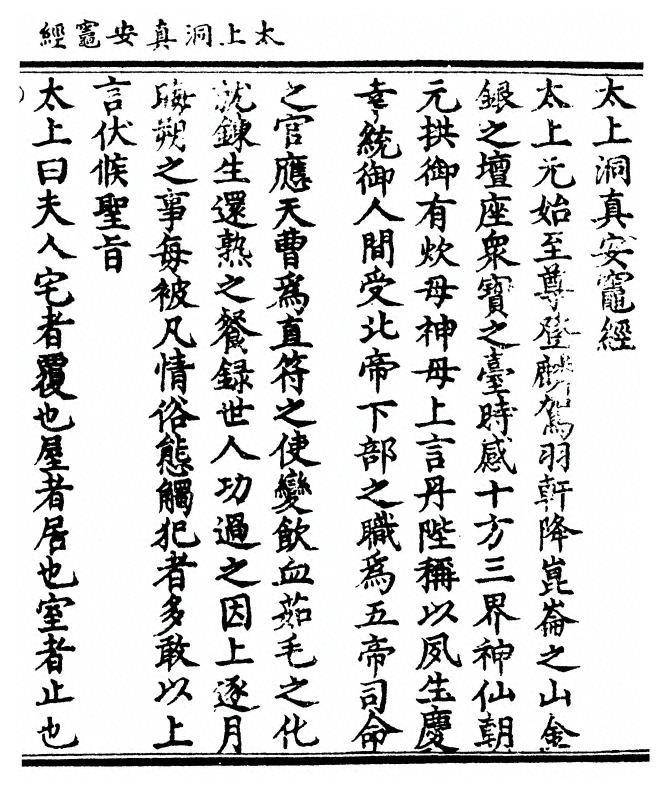 太上洞真安竈經
太上洞真安竈經
太上元始至尊登麟駕羽軒降崑崙之山金
銀之壇座衆寶之臺時感十方三界神仙朝
元拱御有炊母神母上言丹陛稱以夙生慶
幸統御人間受北帝下部之職爲五帝司命
之官應天曹爲直符之使變飲血茹毛之化
就鍊生還熟之餐録世人功過之因上逐月
晦朔之事每被凡情俗態觸犯者多敢以上
言伏候聖旨
太上曰夫人宅者覆也屋者居也室者止也